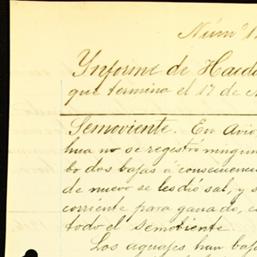 Núm. 1
Informe de Hacie
que termina el 17 de
Semoviente. En Avio
hua no se registró ningun
bo dos bajas á consecuencia
de nuevo se les dió sal, y s
corriente para ganado, e
todo el semoviente.
Los aguajes han baj